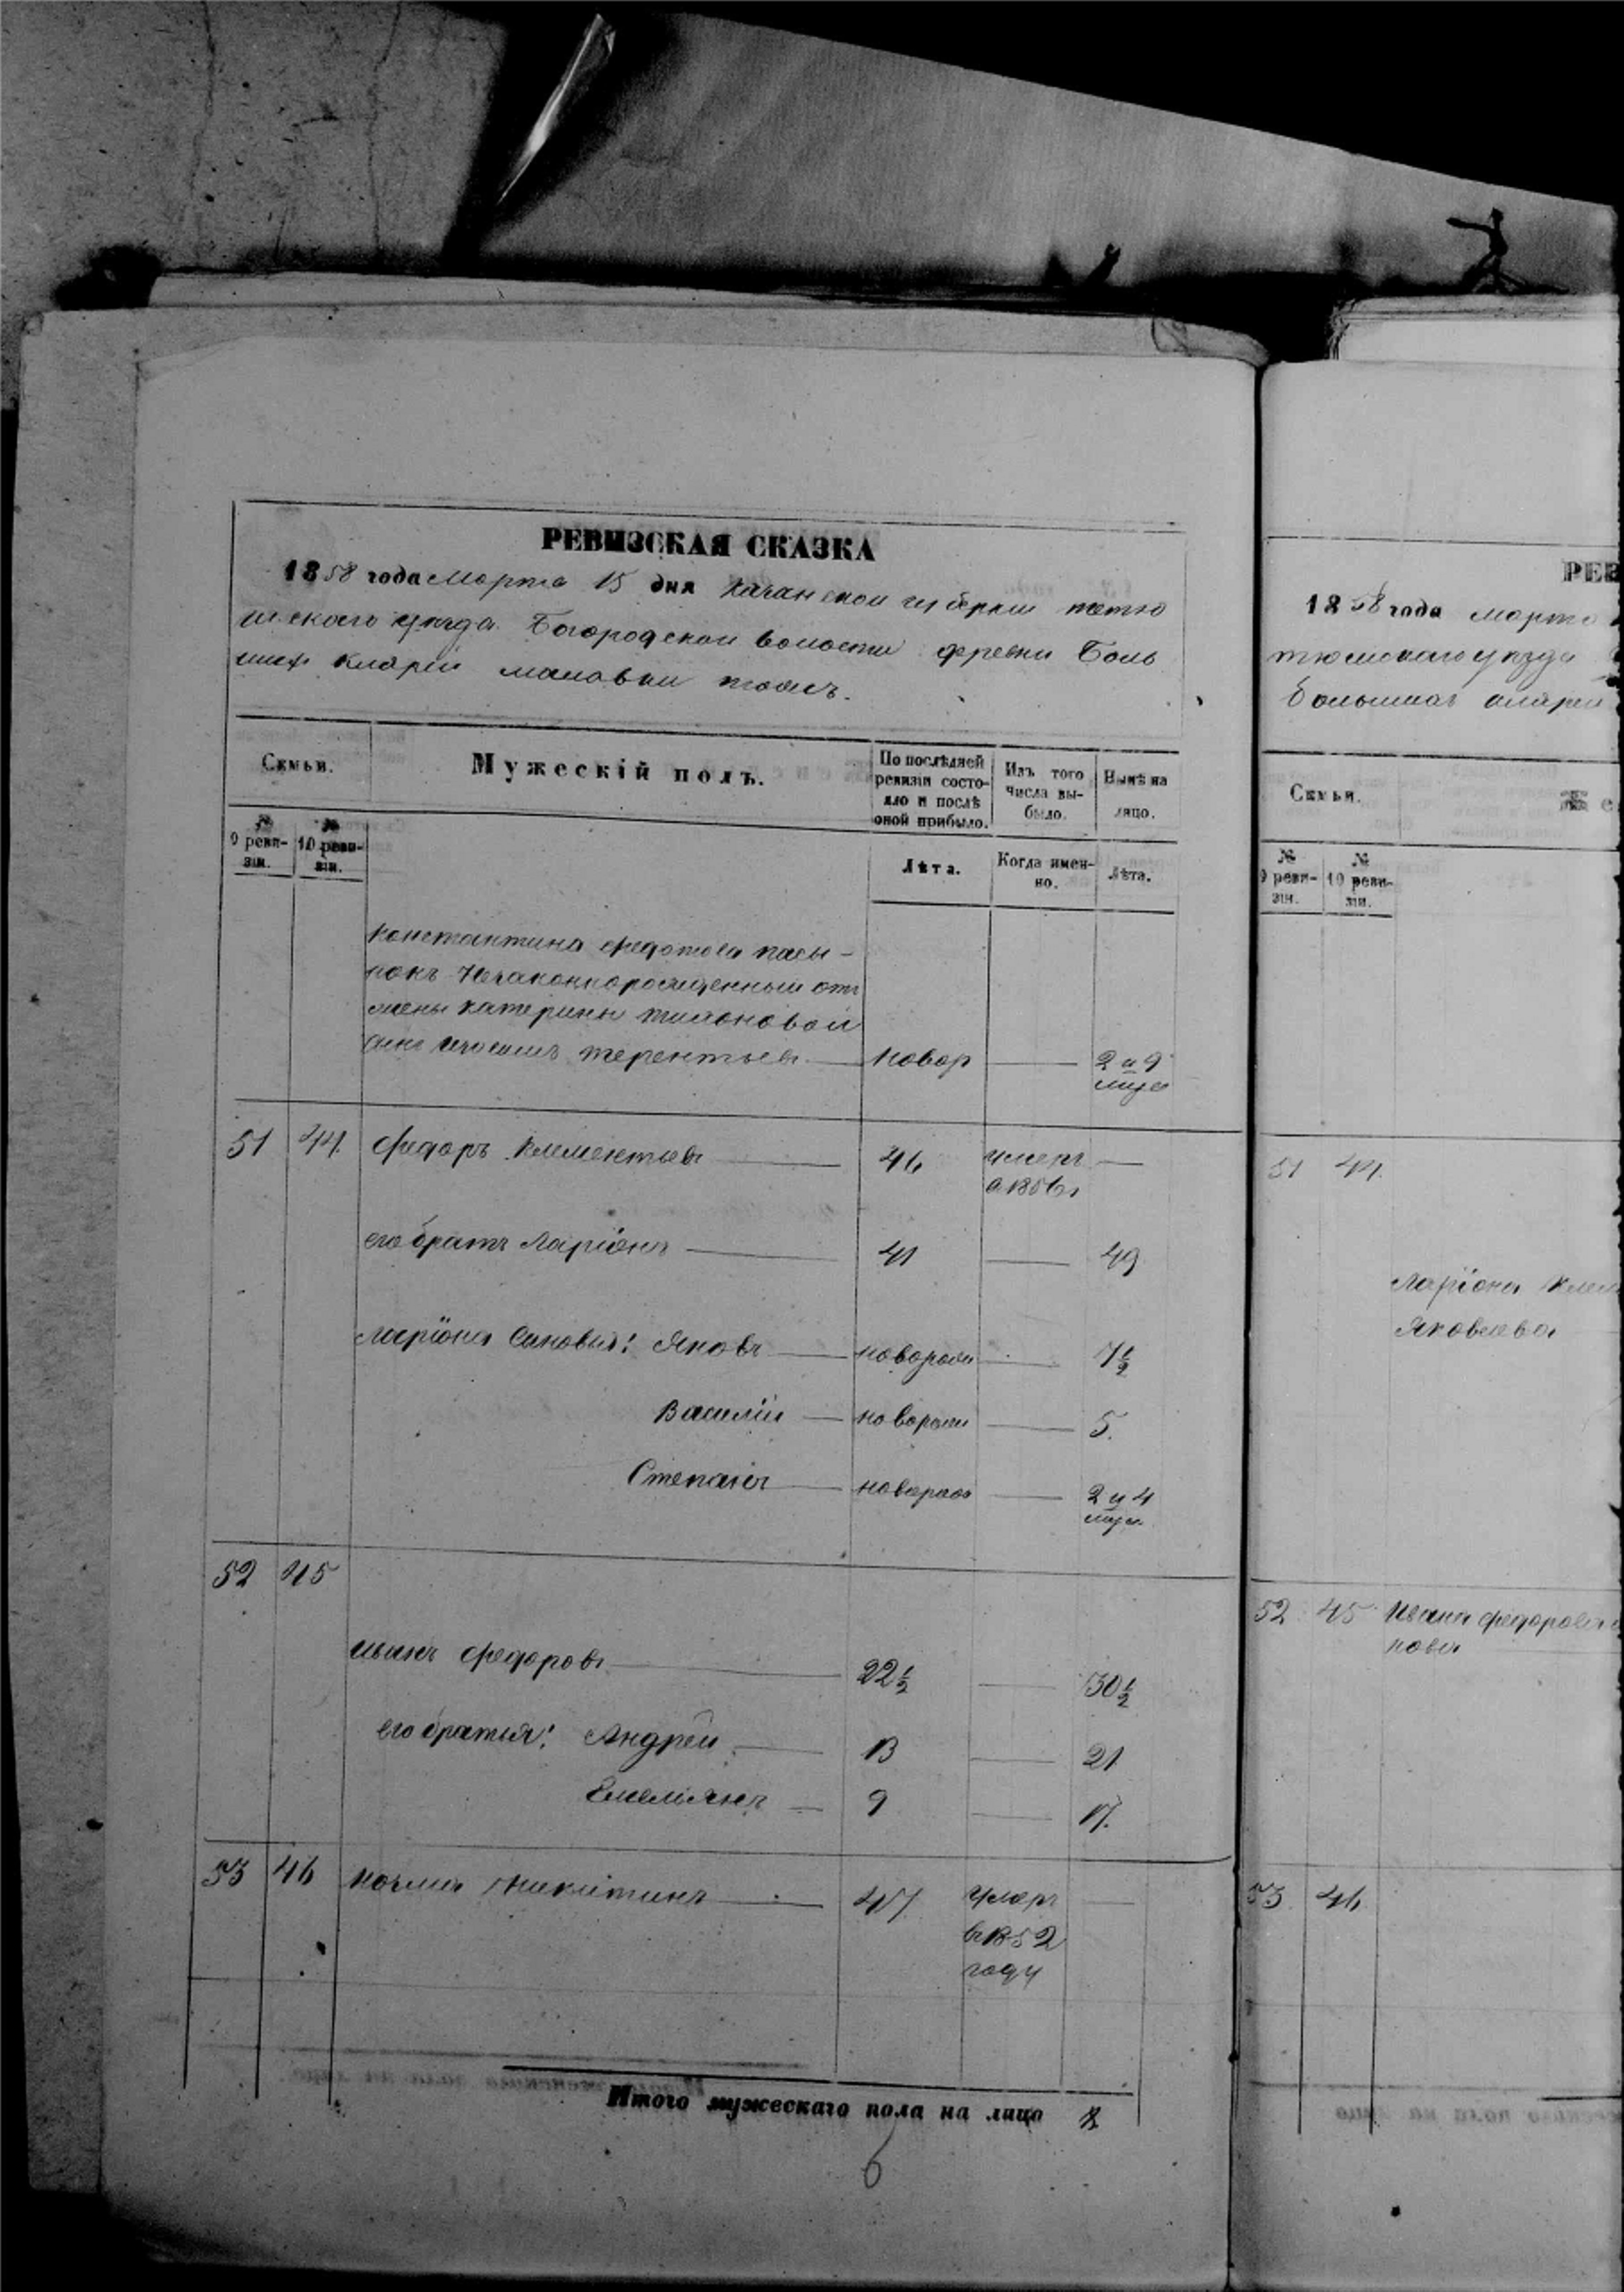 РЕВИЗСКАЯ СКАЗКА
1858 года Марта 15 дня Казанской губернии тетю
шскаго уезда Богородской волости деревни Боль
шихъ
Семьи.
Мужескій полъ.
По послѣдней ревизіи состо-яло и послѣ оной прибыло.
Изъ того числа вы-было.
Нынѣ на лицо.
№ 9 реви-зіи.
№ 10 реви-зіи.
Лѣта.
Когда имен-но.
Лѣта.
Константина Федотова пасы-
нокъ Незаконнорожденный отъ
жены Катерины
Терентьевъ новор 2 и 9
51 44 Федоръ Клементьевъ 46 умеръ
в 1856
его братъ Ларіонъ 41 49
Ларіона Сыновья: Яковъ новорож 7½
Василій новорож 5.
Степанъ новорож 2 и 4
52 45
Иванъ Федоровъ 22½ 30½
его братья: Андрей 13 21
Емельянъ 9 17.
53 46 Козма Никитинъ 47 Умеръ
въ 1852
году
Итого мужескаго пола на лицо 8
6
РЕВ
1858 года Марта
тюшскаго уезда
Большихъ
Семьи.
Же
№ 9 реви-зіи.
№ 10 реви-зіи.
51 44
Ларіона Клем
Яковлева
52 45 Ивана Федорова
нова
53 46